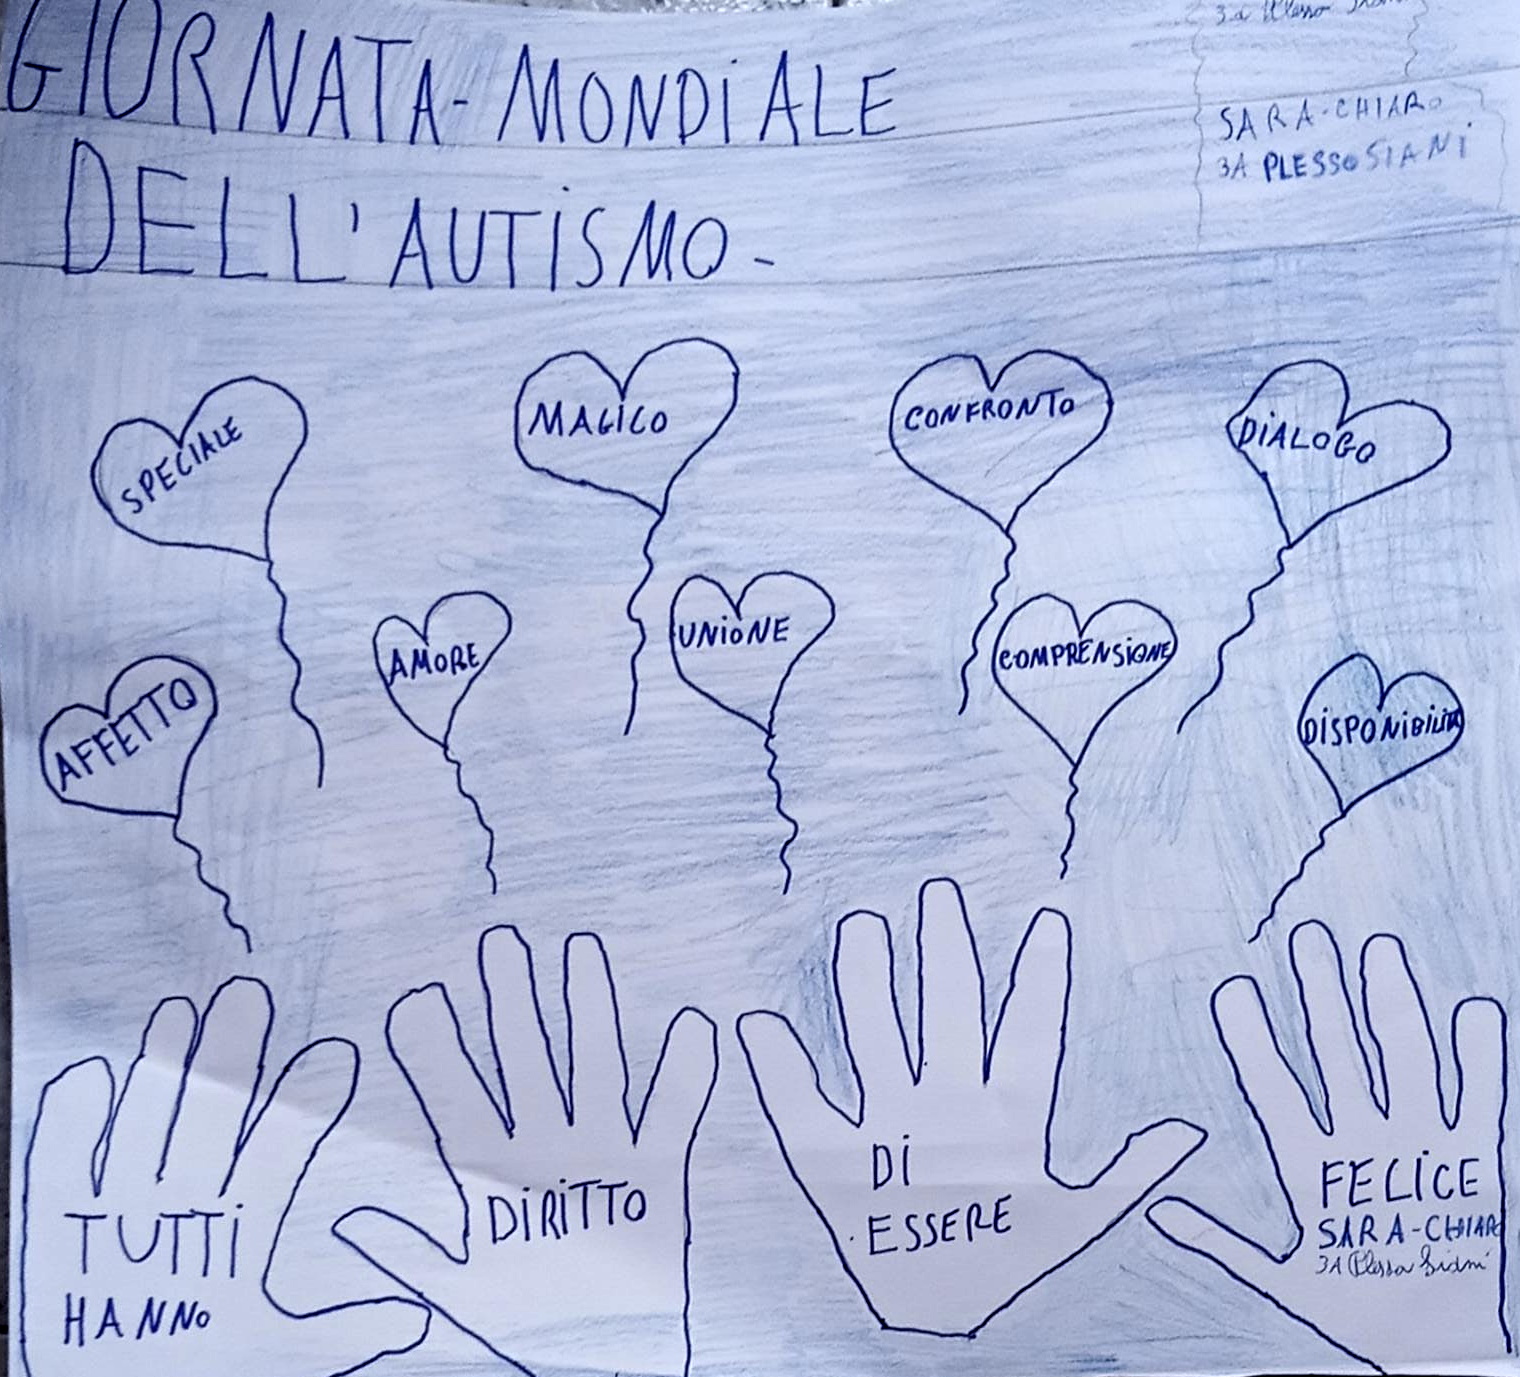 GIORNATA-MONDIALE
DELL'AUTISMO-
3a Plesso Siani
SARA-CHIARO
3A PLESSO SIANI
SPECIALE
MAGICO
CONFRONTO
DIALOGO
AFFETTO
AMORE
UNIONE
COMPRENSIONE
DISPONIBILITA
TUTTI
HANNO
DIRITTO
DI
ESSERE
FELICE
SARA-CHIARO
3A Plesso Siani